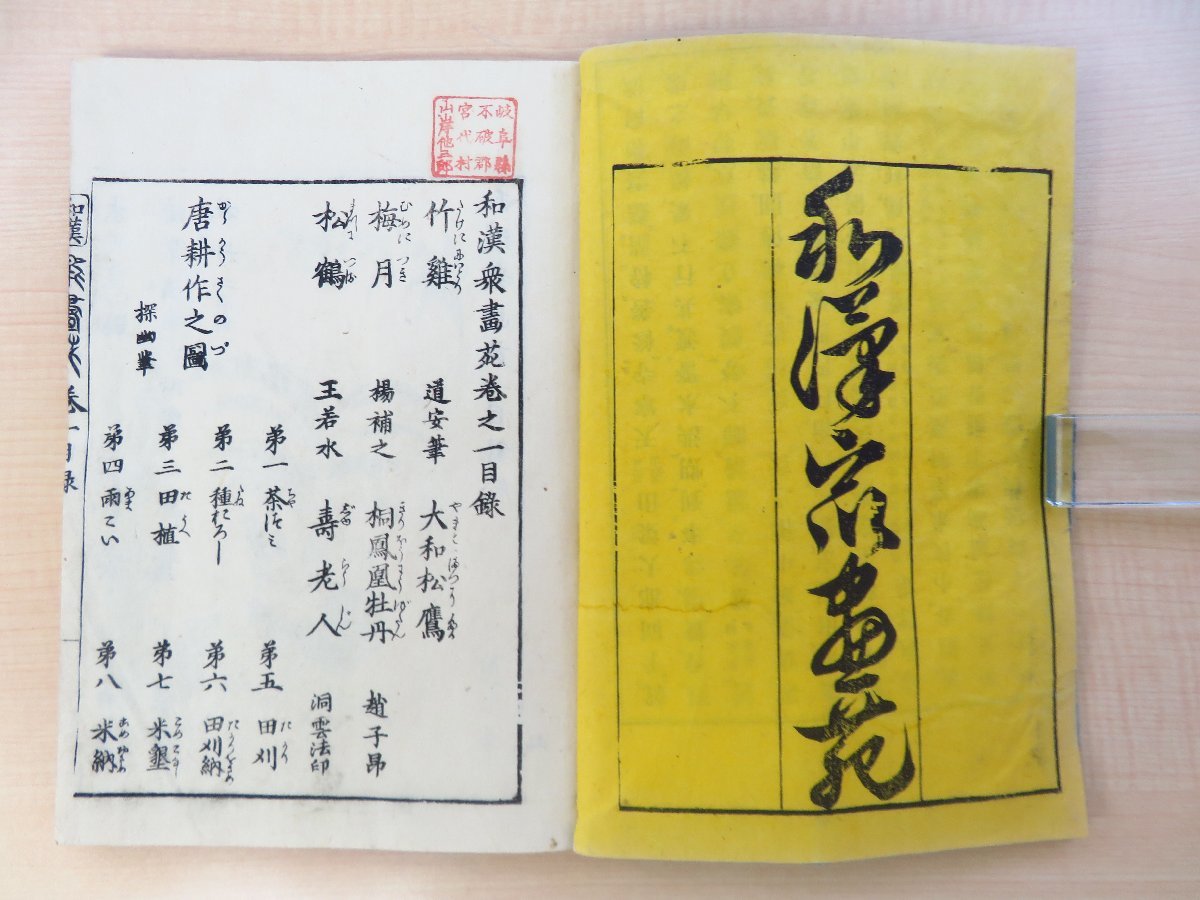 和漢衆畫苑
岐阜縣
不破郡
宮代村
山岸他三郎
和漢衆畫苑卷之一目錄
竹雞 道安筆 大和松鷹
梅月 楊補之 桐鳳凰牡丹 趙子昂
松鶴 王若水 壽老人 洞雲法印
唐耕作之圖 探幽筆
かうさくのづ
むめにつき
第一 茶つミ 第五 田刈
第二 種おろし 第六 田刈納
第三 田植 第七 米墾
第四 雨こい 第八 米納
和漢衆畫苑 卷一目錄